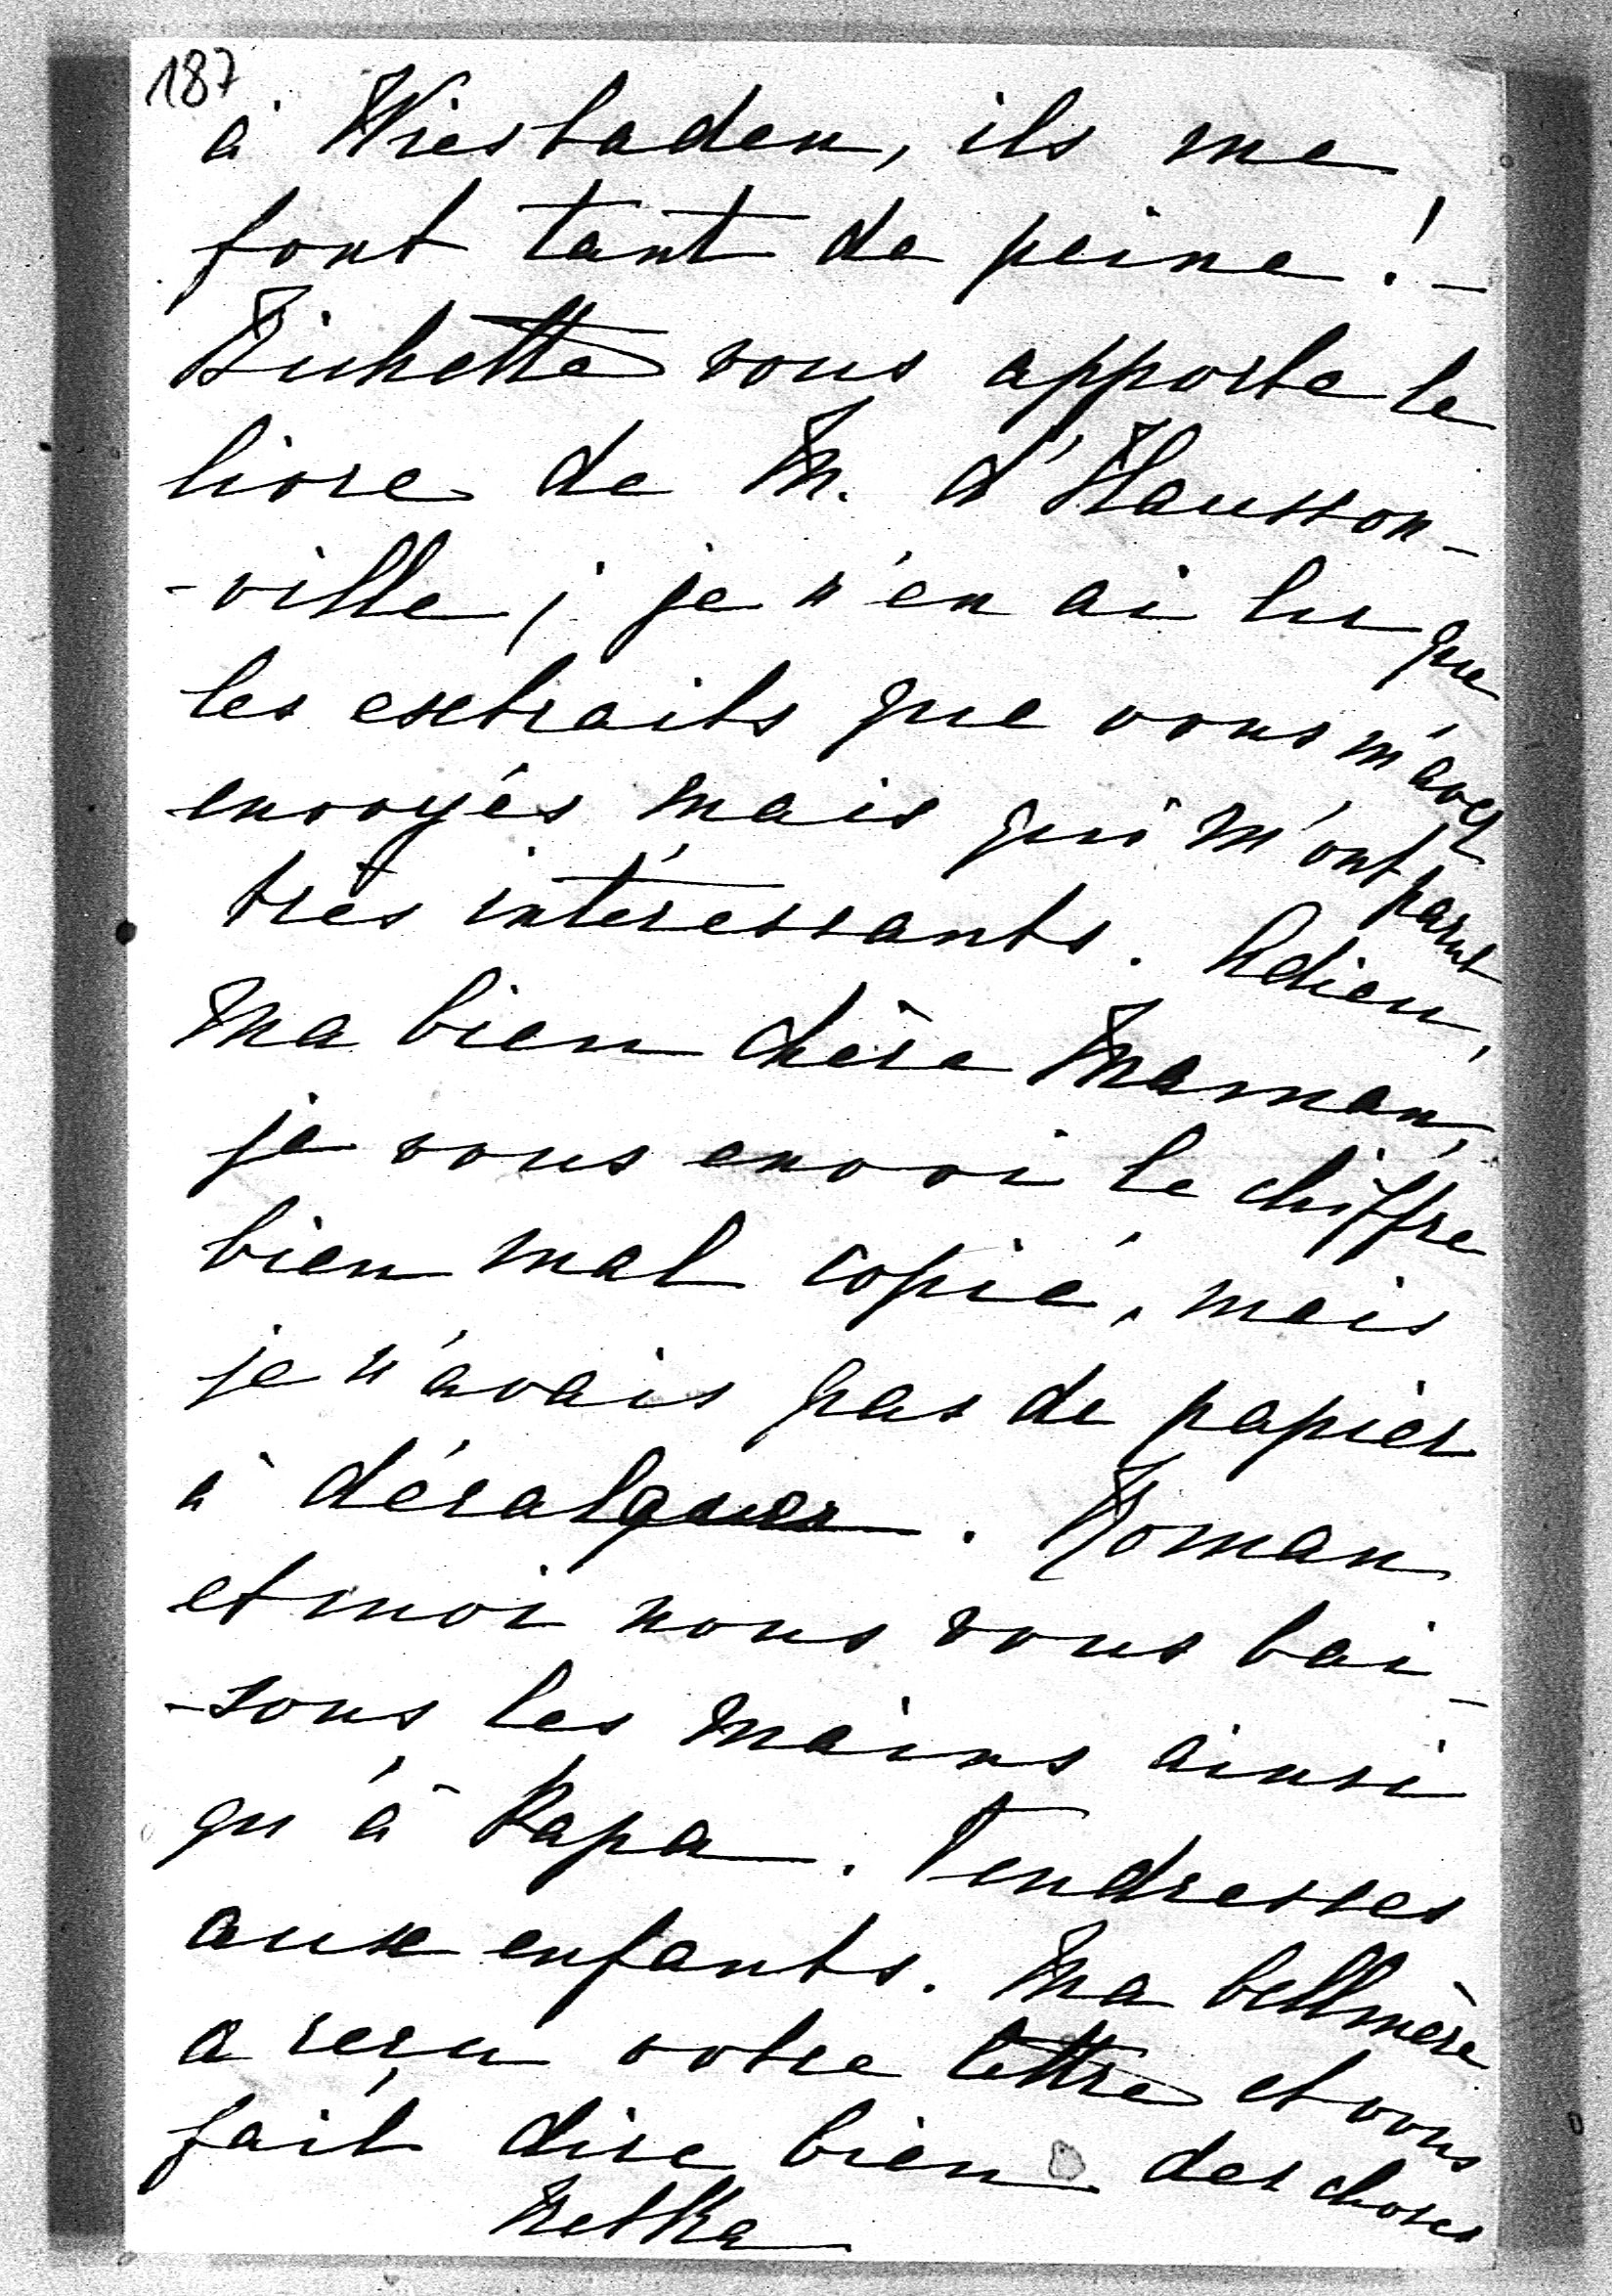 187
à Wiesbaden, ils me
font tant de peine! -
Bichette vous apporte le
livre de M. d'Hausson-
-ville; je n'en ai lu que
les extraits que vous m'avez
envoyés mais qui m'ont paru
très intéressants. Adieu,
ma bien chère Maman,
je vous envoi le chiffre
bien mal copié, mais
je n'avais pas de papier
à décalquer. Roman
et moi nous vous bai-
-sons les mains ainsi
qu'à Papa. Tendresses
aux enfants. Ma bellmère
a reçu votre lettre et vous
fait dire bien des choses